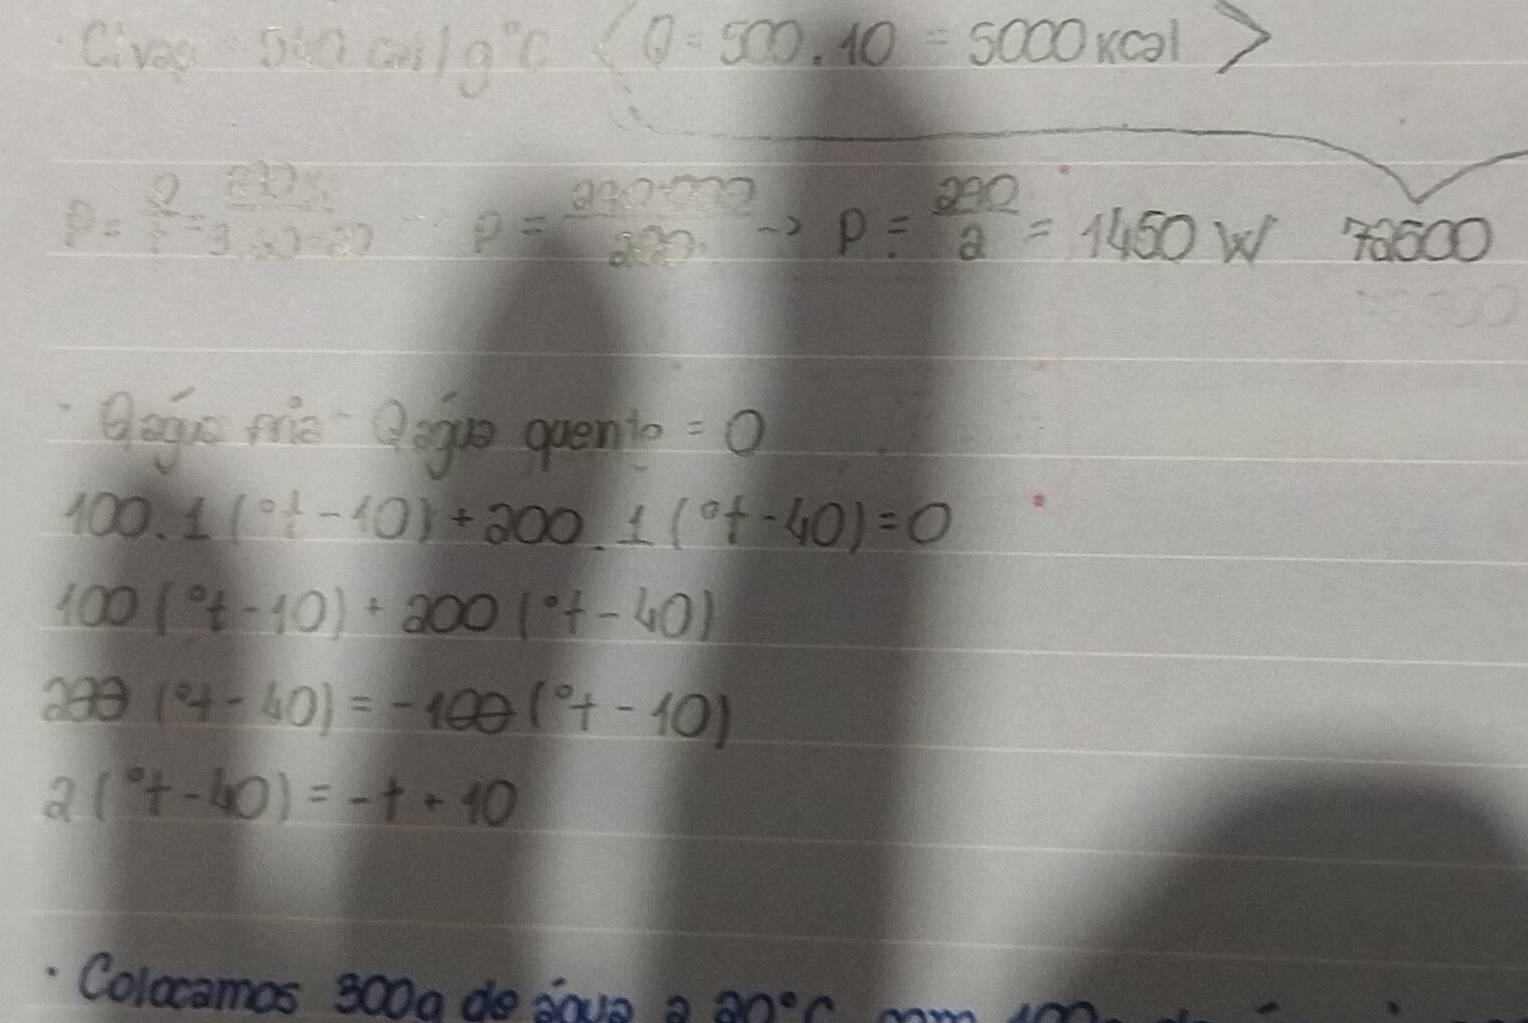 · Civap = 540 cal/g°C < Q = 500 . 10 = 5000 Kcal >
P = Q = P = 290.000 -> P = 290/2 = 1450 W 72500
· Qágua fria - Qágua quente = 0
100 . 1 (°t - 10) + 200 . 1 (°t - 40) = 0
100 (°t - 10) + 200 (°t - 40)
200 (°t - 40) = -100 (°t - 10)
2 (°t - 40) = -t + 10
· Colocamos 300g de água a 20°C com 100g